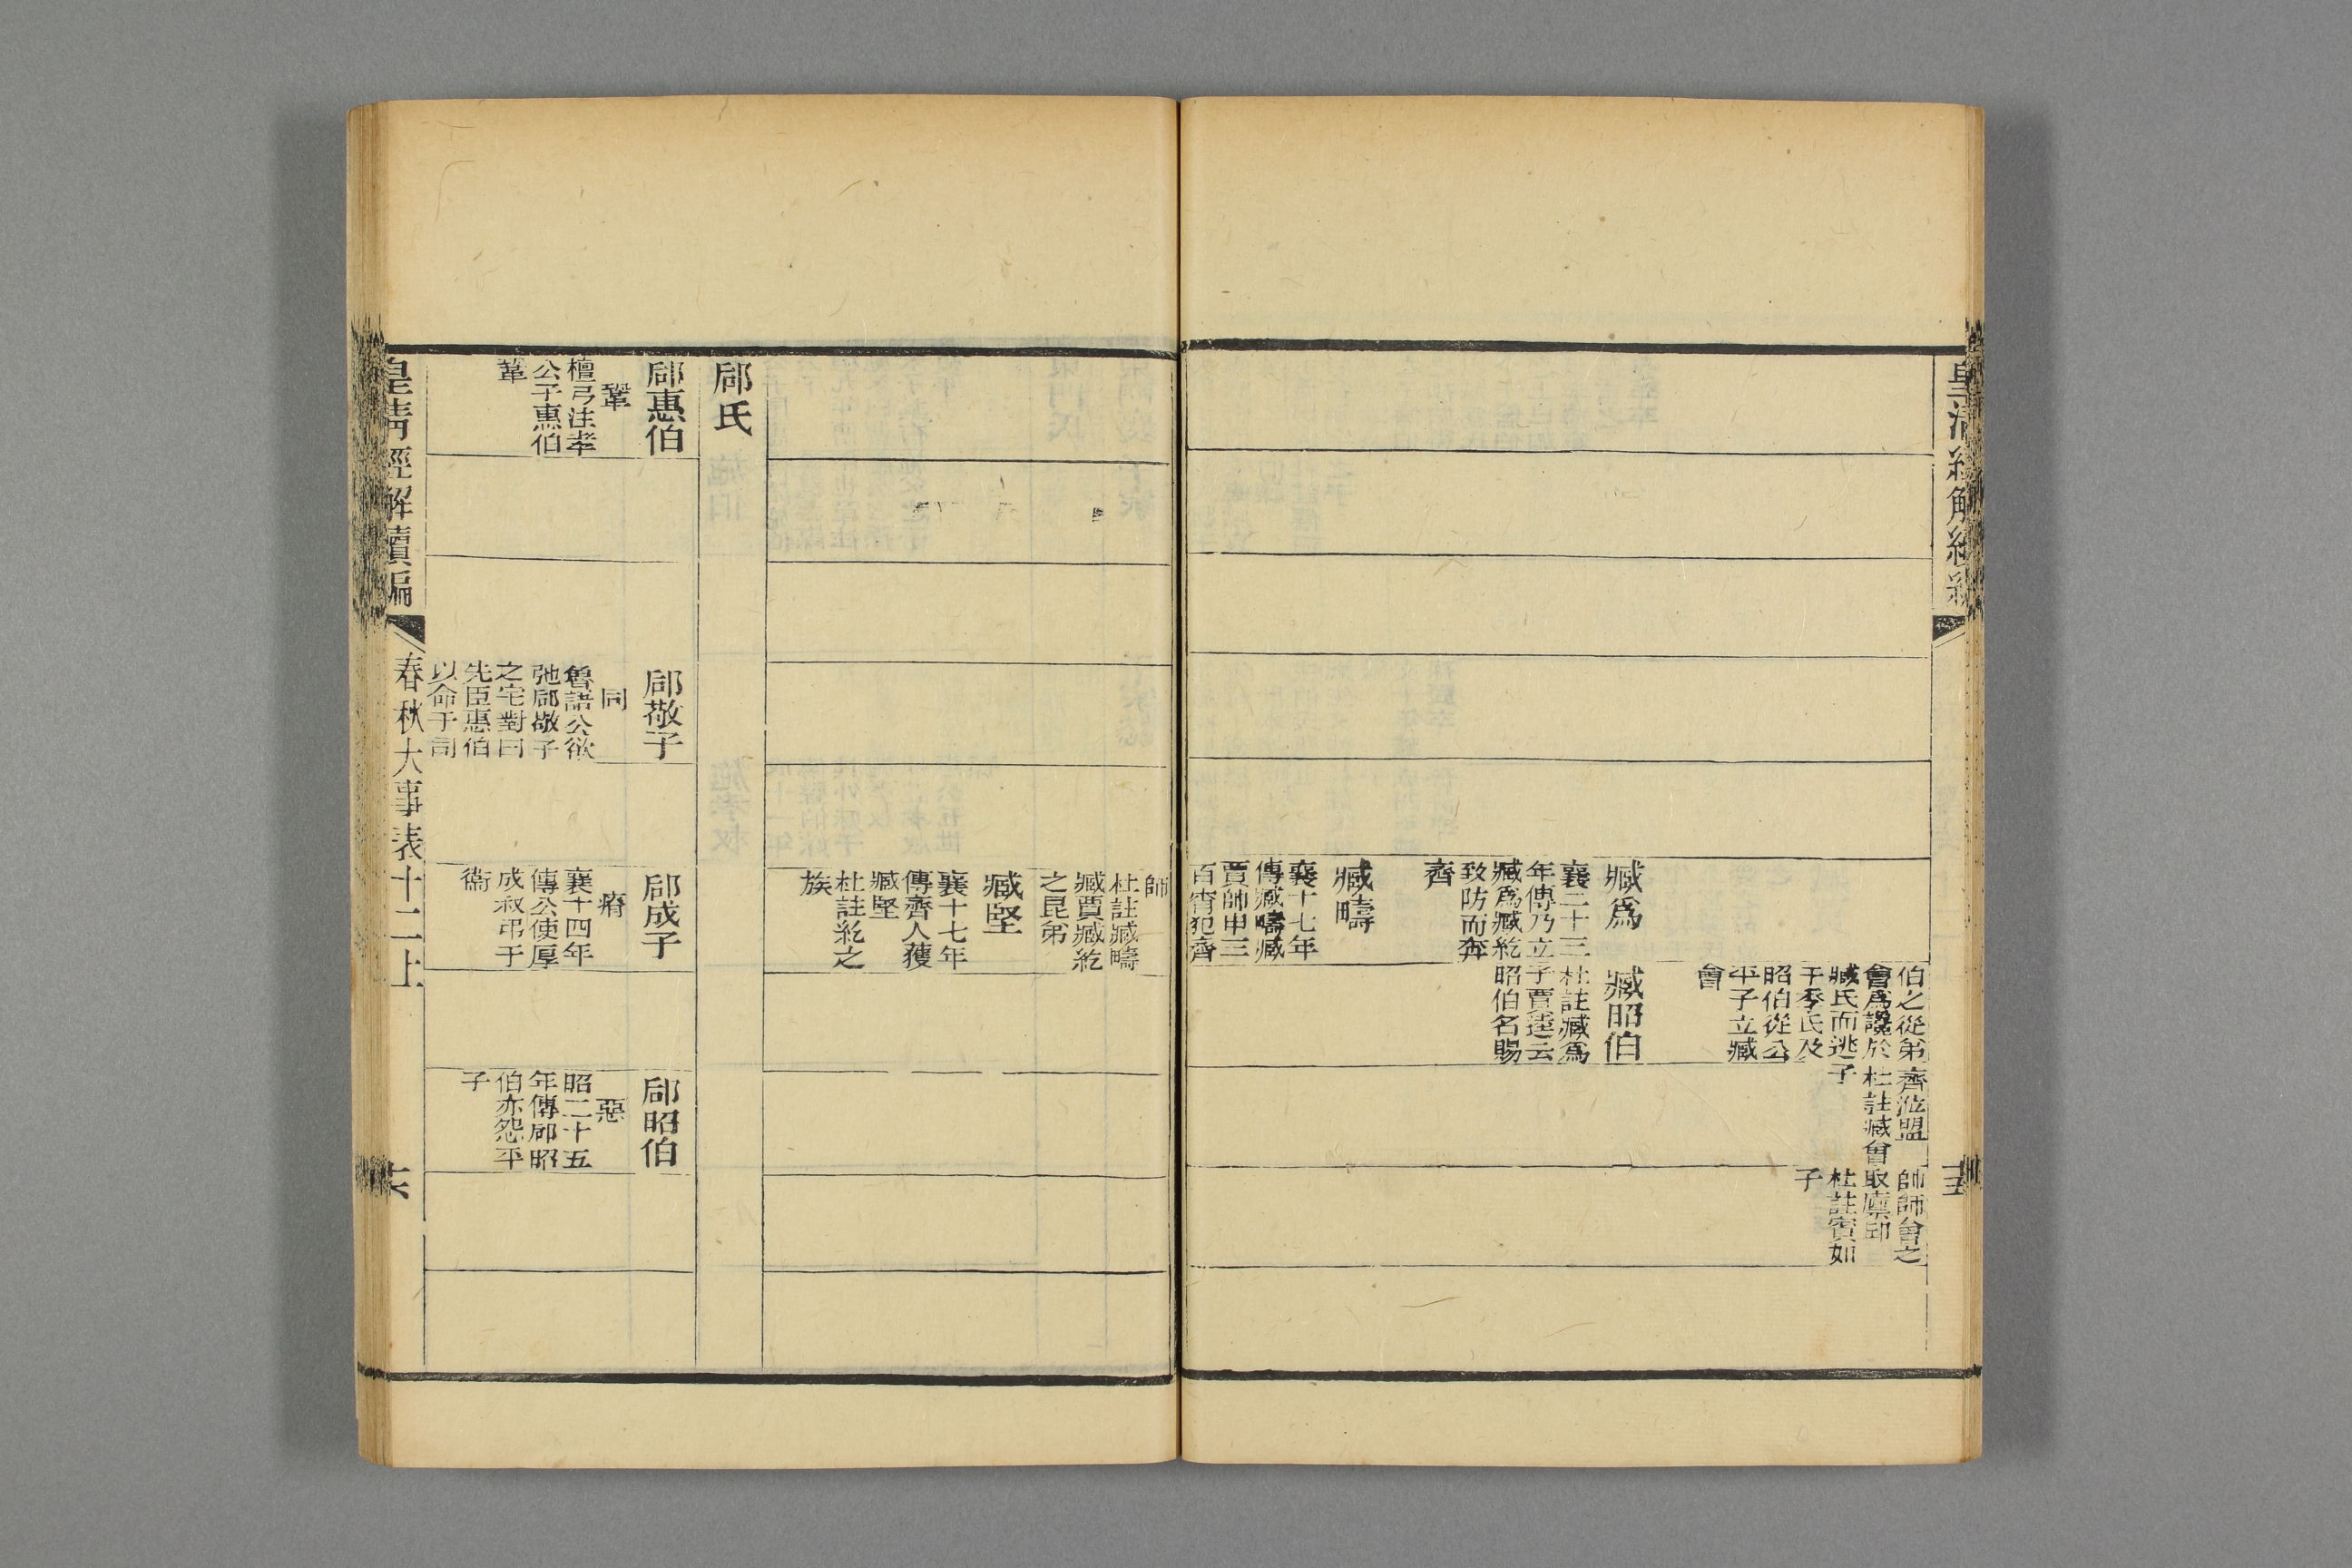 伯之從弟
會爲讒於
臧氏而逃
于季氏及
昭伯從公
平子立臧
會
齊涖盟
杜註臧會
子
帥師會之
取廩邱
杜註賓如
子
臧爲
襄二十三
年傳乃立
臧爲臧紇
致防而奔
齊
臧昭伯
杜註臧爲
子賈逵云
昭伯名賜
臧疇
襄十七年
傳臧疇臧
賈帥甲三
百宵犯齊
師
杜註臧疇
臧賈臧紇
之昆弟
臧堅
襄十七年
傳齊人獲
臧堅
杜註紇之
族
郈氏
郈惠伯
鞏
檀弓注孝
公子惠伯
革
郈敬子
同
魯語公欲
弛郈敬子
之宅對曰
先臣惠伯
以命于司
郈成子
瘠
襄十四年
傳公使厚
成叔弔于
衞
郈昭伯
惡
昭二十五
年傳郈昭
伯亦怨平
子
皇清經解續編
春秋大事表十二上